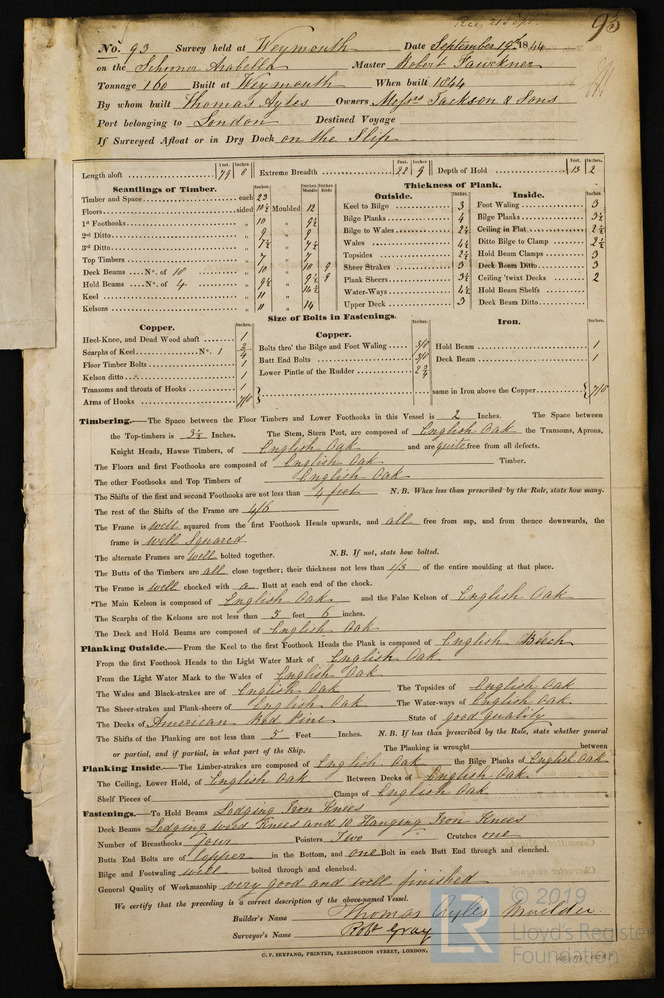 Rec 21 Sept
93
No. 93 Survey held at Weymouth Date September 19th 1844
on the Schooner Arabella Master Robert Fawckner
Tonnage 160 Built at Weymouth When built 1844
By whom built Thomas Ayles Owners Messrs Jackson & Sons
Port belonging to London Destined Voyage
If Surveyed Afloat or in Dry Dock on the Slip
Feet. Inches. Feet. Inches. Feet. Inches.
Length aloft 79 8 Extreme Breadth 22 9 Depth of Hold 13 2
Scantlings of Timber. Thickness of Plank.
Outside. Inside.
Timber and Space each 23 Keel to Bilge 3 Foot Waling 3
Floors sided 10½ Moulded 12 Bilge Planks 4 Bilge Planks 3½
1st Foothooks 10 9½ Bilge to Wales 2½ Ceiling in Flat 2½
2nd Ditto 9 9 Wales 4½ Ditto Bilge to Clamp 2½
3rd Ditto 7½ 7½ Topsides 2½ Hold Beam Clamps 3
Top Timbers 7 7 Sheer Strakes 3 Deck Beam Ditto 3
Deck Beams No. of 18 10 10 9 Plank Sheers 3½ Ceiling 'twixt Decks 2
Hold Beams No. of 4 9½ 9½ 9 Water-Ways 4½ Hold Beam Shelfs
Keel 11 Upper Deck 3 Deck Beam Ditto
Kelsons 11 14
Size of Bolts in Fastenings.
Copper. Copper. Iron.
Heel-Knee, and Dead Wood abaft 1
Scarphs of Keel No. 1 3/4 Bolts thro' the Bilge and Foot Waling Hold Beam 1
Floor Timber Bolts 1 Butt End Bolts Deck Beam 1
Kelson ditto 1 Lower Pintle of the Rudder 2¾
Transoms and throats of Hooks 1 same in Iron above the Copper 7/10
Arms of Hooks 7/10
Timbering.—The Space between the Floor Timbers and Lower Foothooks in this Vessel is 2 Inches. The Space between
the Top-timbers is 3½ Inches. The Stem, Stern Post, are composed of English Oak the Transoms, Aprons,
Knight Heads, Hawse Timbers, of English Oak and are quite free from all defects.
The Floors and first Foothooks are composed of English Oak Timber.
The other Foothooks and Top Timbers of English Oak
The Shifts of the first and second Foothooks are not less than 4 feet N.B. When less than prescribed by the Rule, state how many.
The rest of the Shifts of the Frame are 4/6
The Frame is well squared from the first Foothook Heads upwards, and all free from sap, and from thence downwards, the
frame is well squared
The alternate Frames are well bolted together. N.B. If not, state how bolted.
The Butts of the Timbers are all close together; their thickness not less than 1/3 of the entire moulding at that place.
The Frame is well chocked with a Butt at each end of the chock.
*The Main Kelson is composed of English Oak and the False Kelson of English Oak
The Scarphs of the Kelsons are not less than 5 feet 6 inches.
The Deck and Hold Beams are composed of English Oak
Planking Outside.—From the Keel to the first Foothook Heads the Plank is composed of English Beech
From the first Foothook Heads to the Light Water Mark of English Oak
From the Light Water Mark to the Wales of English Oak
The Wales and Black-strakes are of English Oak The Topsides of English Oak
The Sheer-strakes and Plank-sheers of English Oak The Water-ways of English Oak.
The Decks of American Red Pine State of good quality
The Shifts of the Planking are not less than 5 Feet Inches. N.B. If less than prescribed by the Rule, state whether general
or partial, and if partial, in what part of the Ship. The Planking is wrought between
Planking Inside.—The Limber-strakes are composed of English Oak the Bilge Planks of English Oak
The Ceiling, Lower Hold, of English Oak Between Decks of English Oak.
Shelf Pieces of Clamps of English Oak
Fastenings.—To Hold Beams Lodging Iron Knees
Deck Beams Lodging wood Knees and 10 Hanging Iron Knees
Number of Breasthooks four Pointers Two Crutches one
Butts End Bolts are of Copper in the Bottom, and one Bolt in each Butt End through and clenched.
Bilge and Footwaling well bolted through and clenched.
General Quality of Workmanship very good and well finished
We certify that the preceding is a correct description of the above-named Vessel.
Builder's Name Thomas Ayles Builder.
Surveyor's Name Robt Gray
C. F. SEYFANG, PRINTER, FARRINGDON STREET, LONDON.
LR © 2019
Lloyd's Register
Foundation